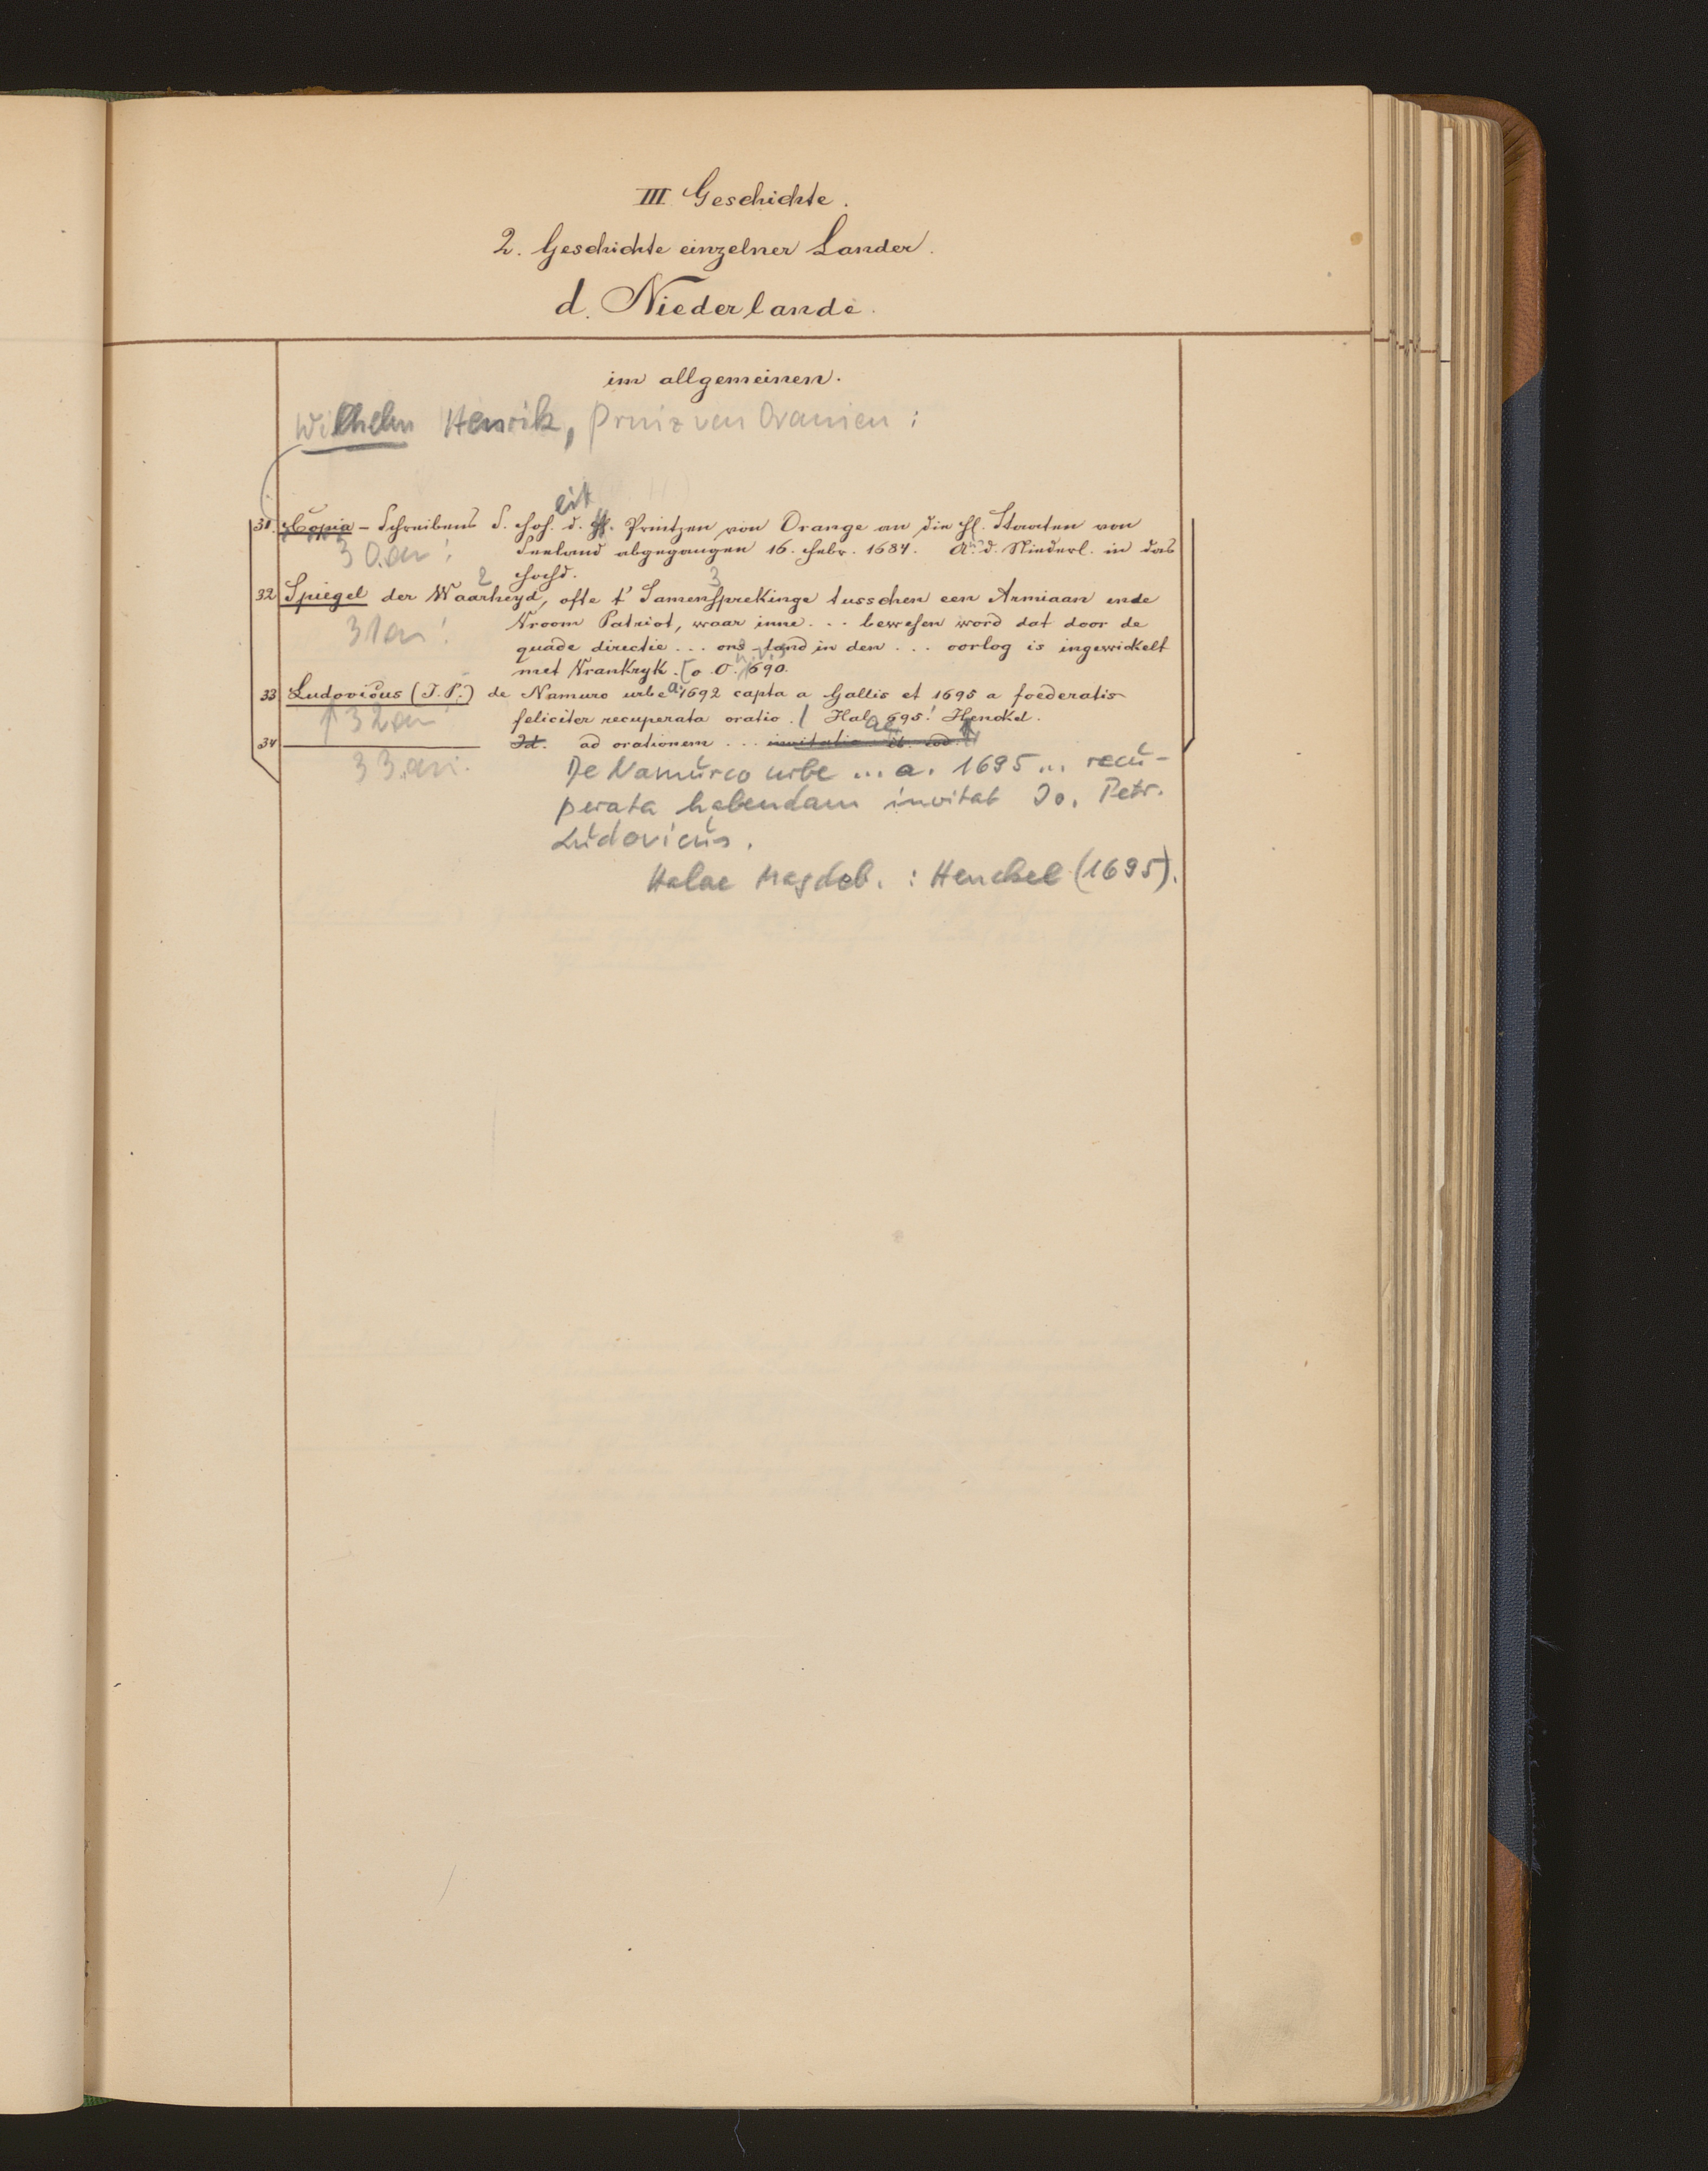 III Geschichte.
2. Geschichte einzelner Länder.
d. Niederlande.
im allgemeinen.
Wilhelm Henrik, Prinz von Oranien:
31. Copia-Schreibens S. Hoheit d. H. Printzen von Orange an die Hl. Staaten von
30.an!
Seeland abgegangen 16. Febr. 1684. A. d. Niederl. in das
Hochd.
2 3
32 Spiegel der Waarheyd, ofte t' Samensprekinge tusschen een Armiaan ende
31an!
Vroom Patriot, waar inne... bewesen word dat door de
quade directie... ons land in den... oorlog is ingewickelt
met Vrankryk. [o. O. 1690.
33 Ludovicus (J. P.) de Namuro urbe a. 1692 capta a Gallis et 1695 a foederatis
32an
feliciter recuperata oratio. / Halae 695. Henckel.
34 Id. ad orationem... invitatio. ib. eod.
33.an.
De Namurco urbe ... a. 1695 ... recu-
perata habendam invitat Jo. Petr.
Ludovicus.
Halae Magdeb. : Henckel (1695).